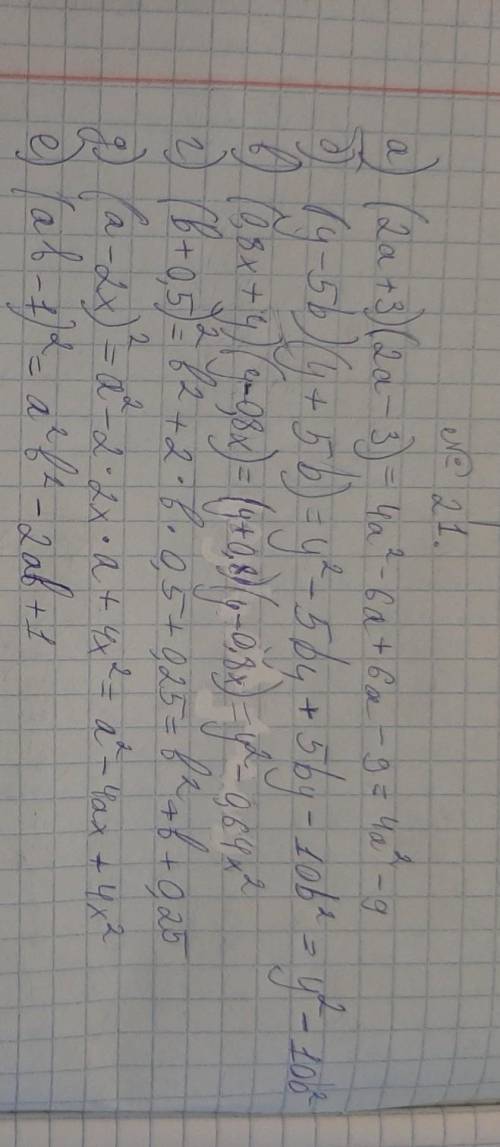 № 21.
а) (2a+3)(2a-3)=4a²-6a+6a-9=4a²-9
б) (y-5b)(y+5b)=y²-5by+5by-10b²=y²-10b²
в) (0,8x+y)(y-0,8x)=(y+0,8)(y-0,8x)=y²-0,64x²
г) (b+0,5)²=b²+2·b·0,5+0,25=b²+b+0,25
д) (a-2x)²=a²-2·2x·a+4x²=a²-4ax+4x²
е) (ab-1)²=a²b²-2ab+1